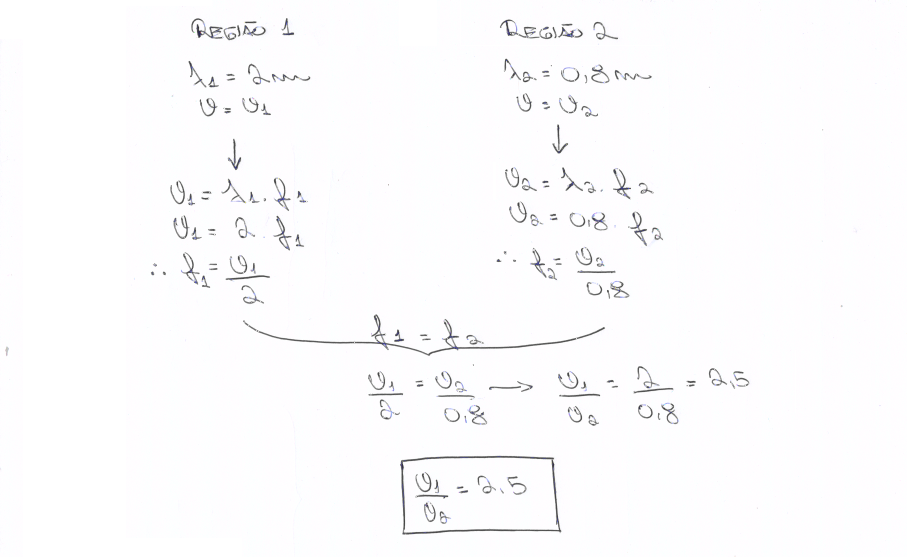 REGIÃO 1
λ1 = 2m
v = v1
↓
v1 = λ1 . f1
v1 = 2 . f1
∴ f1 = v1/2
REGIÃO 2
λ2 = 0,8m
v = v2
↓
v2 = λ2 . f2
v2 = 0,8 . f2
∴ f2 = v2/0,8
f1 = f2
v1/2 = v2/0,8 → v1/v2 = 2/0,8 = 2,5
v1/v2 = 2,5